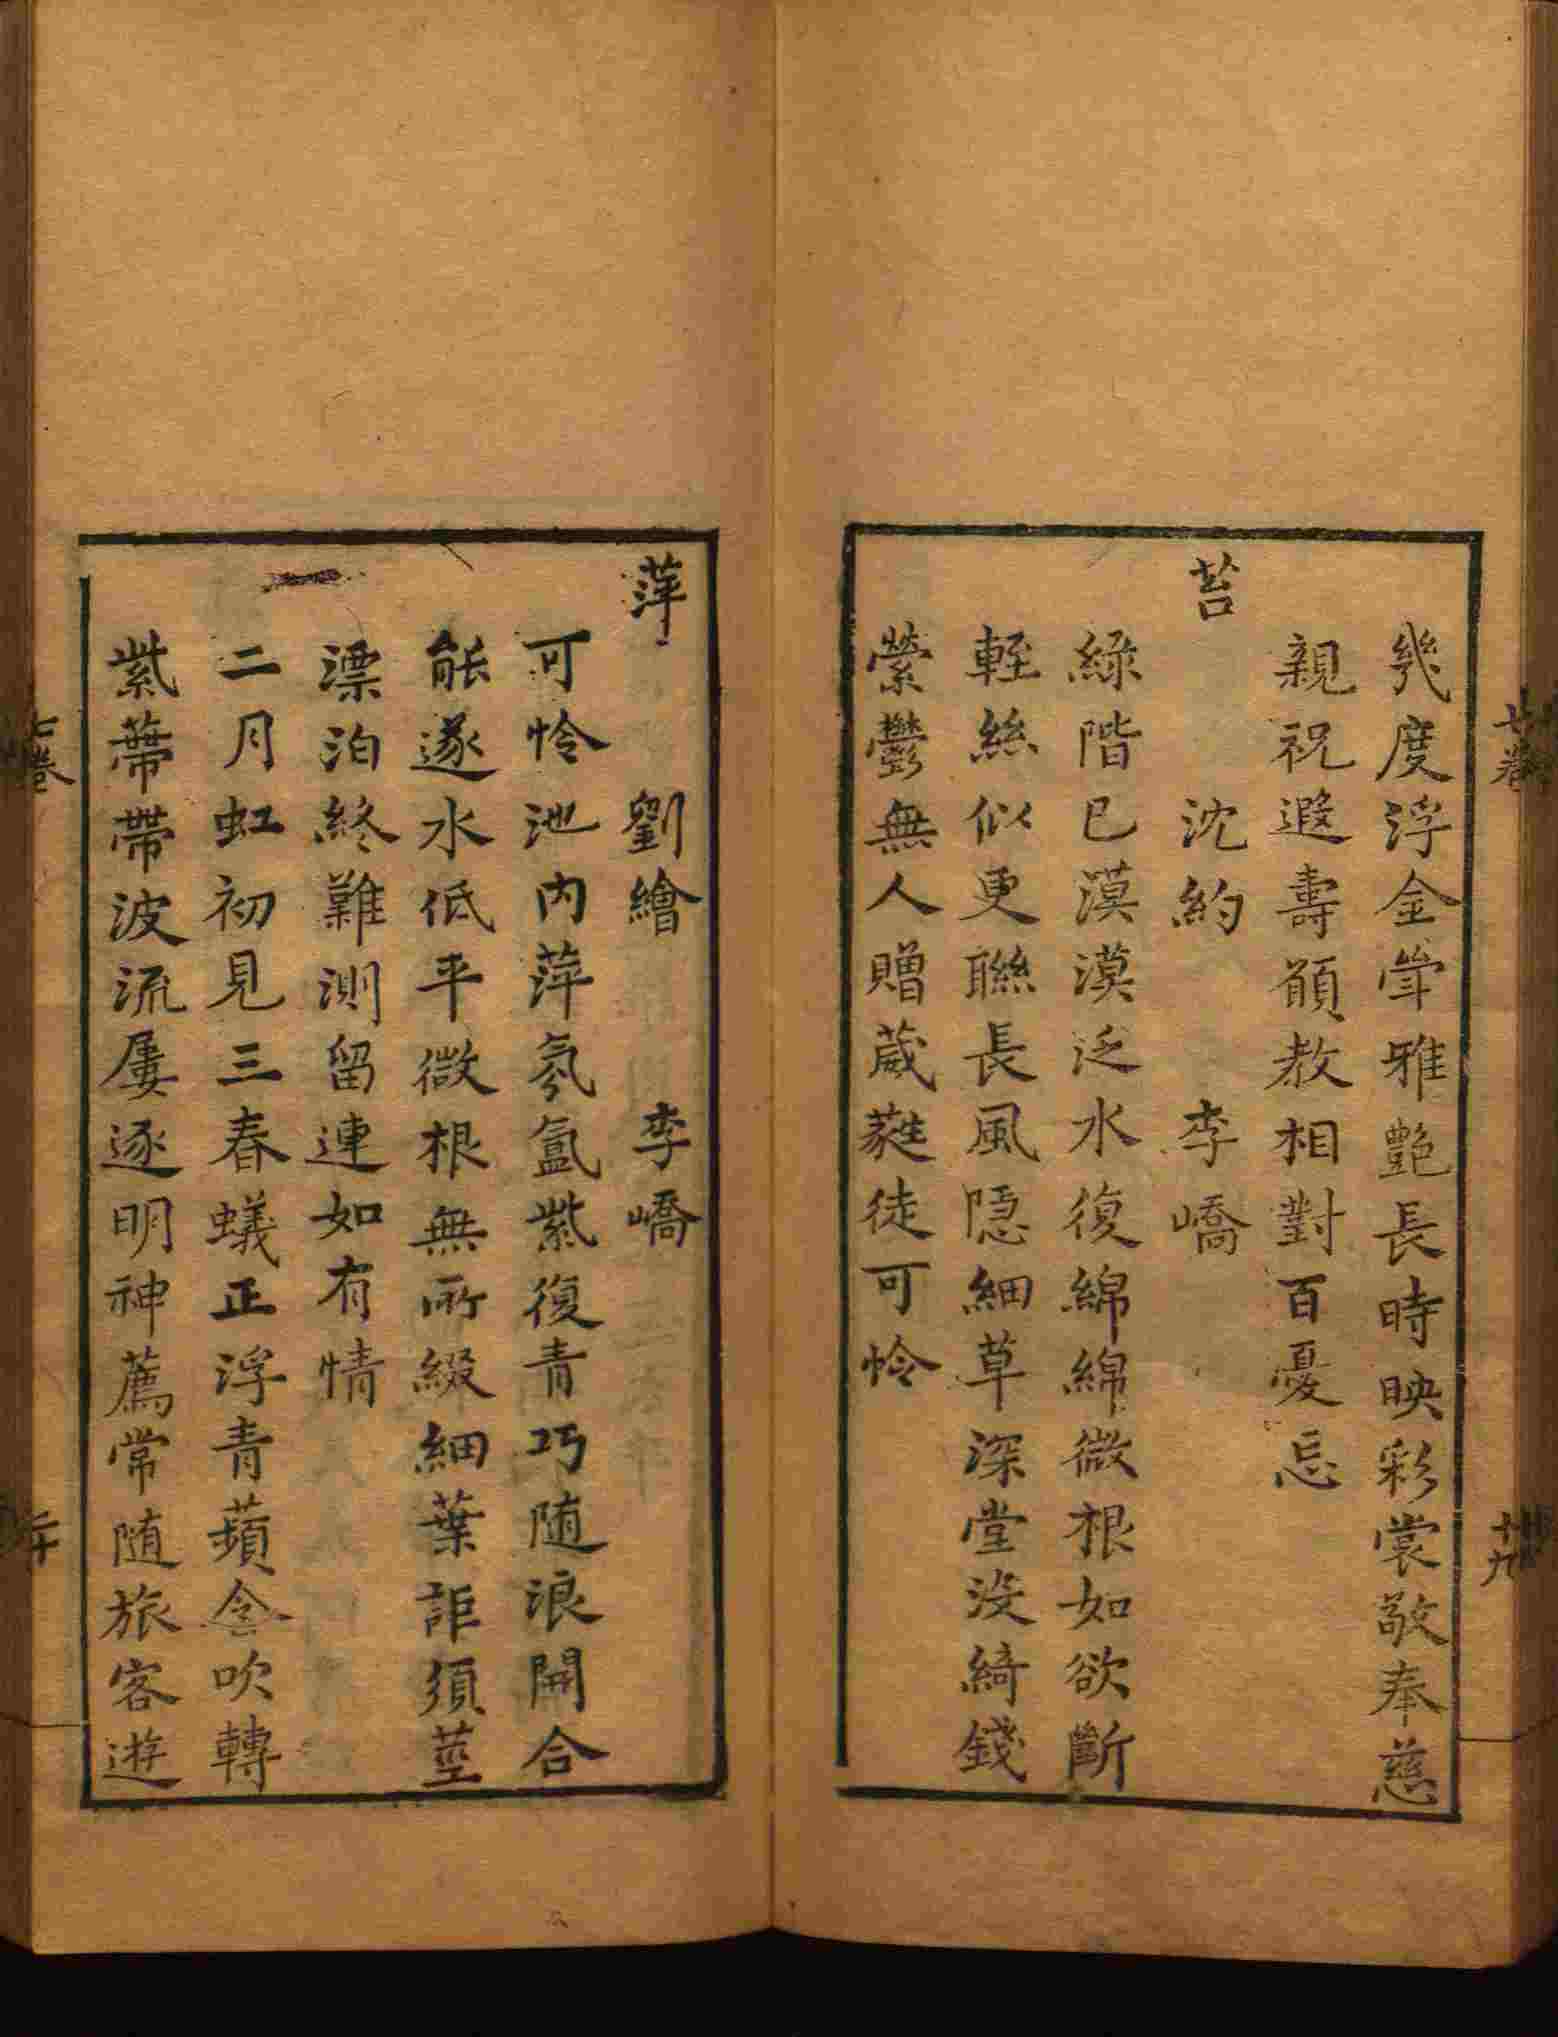 幾度浮金斝雅艷長時映彩裳敬奉慈
親祝遐壽願教相對百憂忘
苔
沈約 李嶠
綠階已漠漠泛水復綿綿微根如欲斷
輕絲似更聯長風隱細草深堂沒綺錢
縈鬱無人贈葳蕤徒可怜
七卷 十九
萍
劉繪 李嶠
可怜池內萍氛氳紫復青巧随浪開合
能遂水低平微根無所綴細葉詎須莖
漂泊終難測留連如有情
二月虹初見三春蟻正浮青蘋含吹轉
紫蔕帶波流屢逐明神薦常随旅客遊
七卷 二十